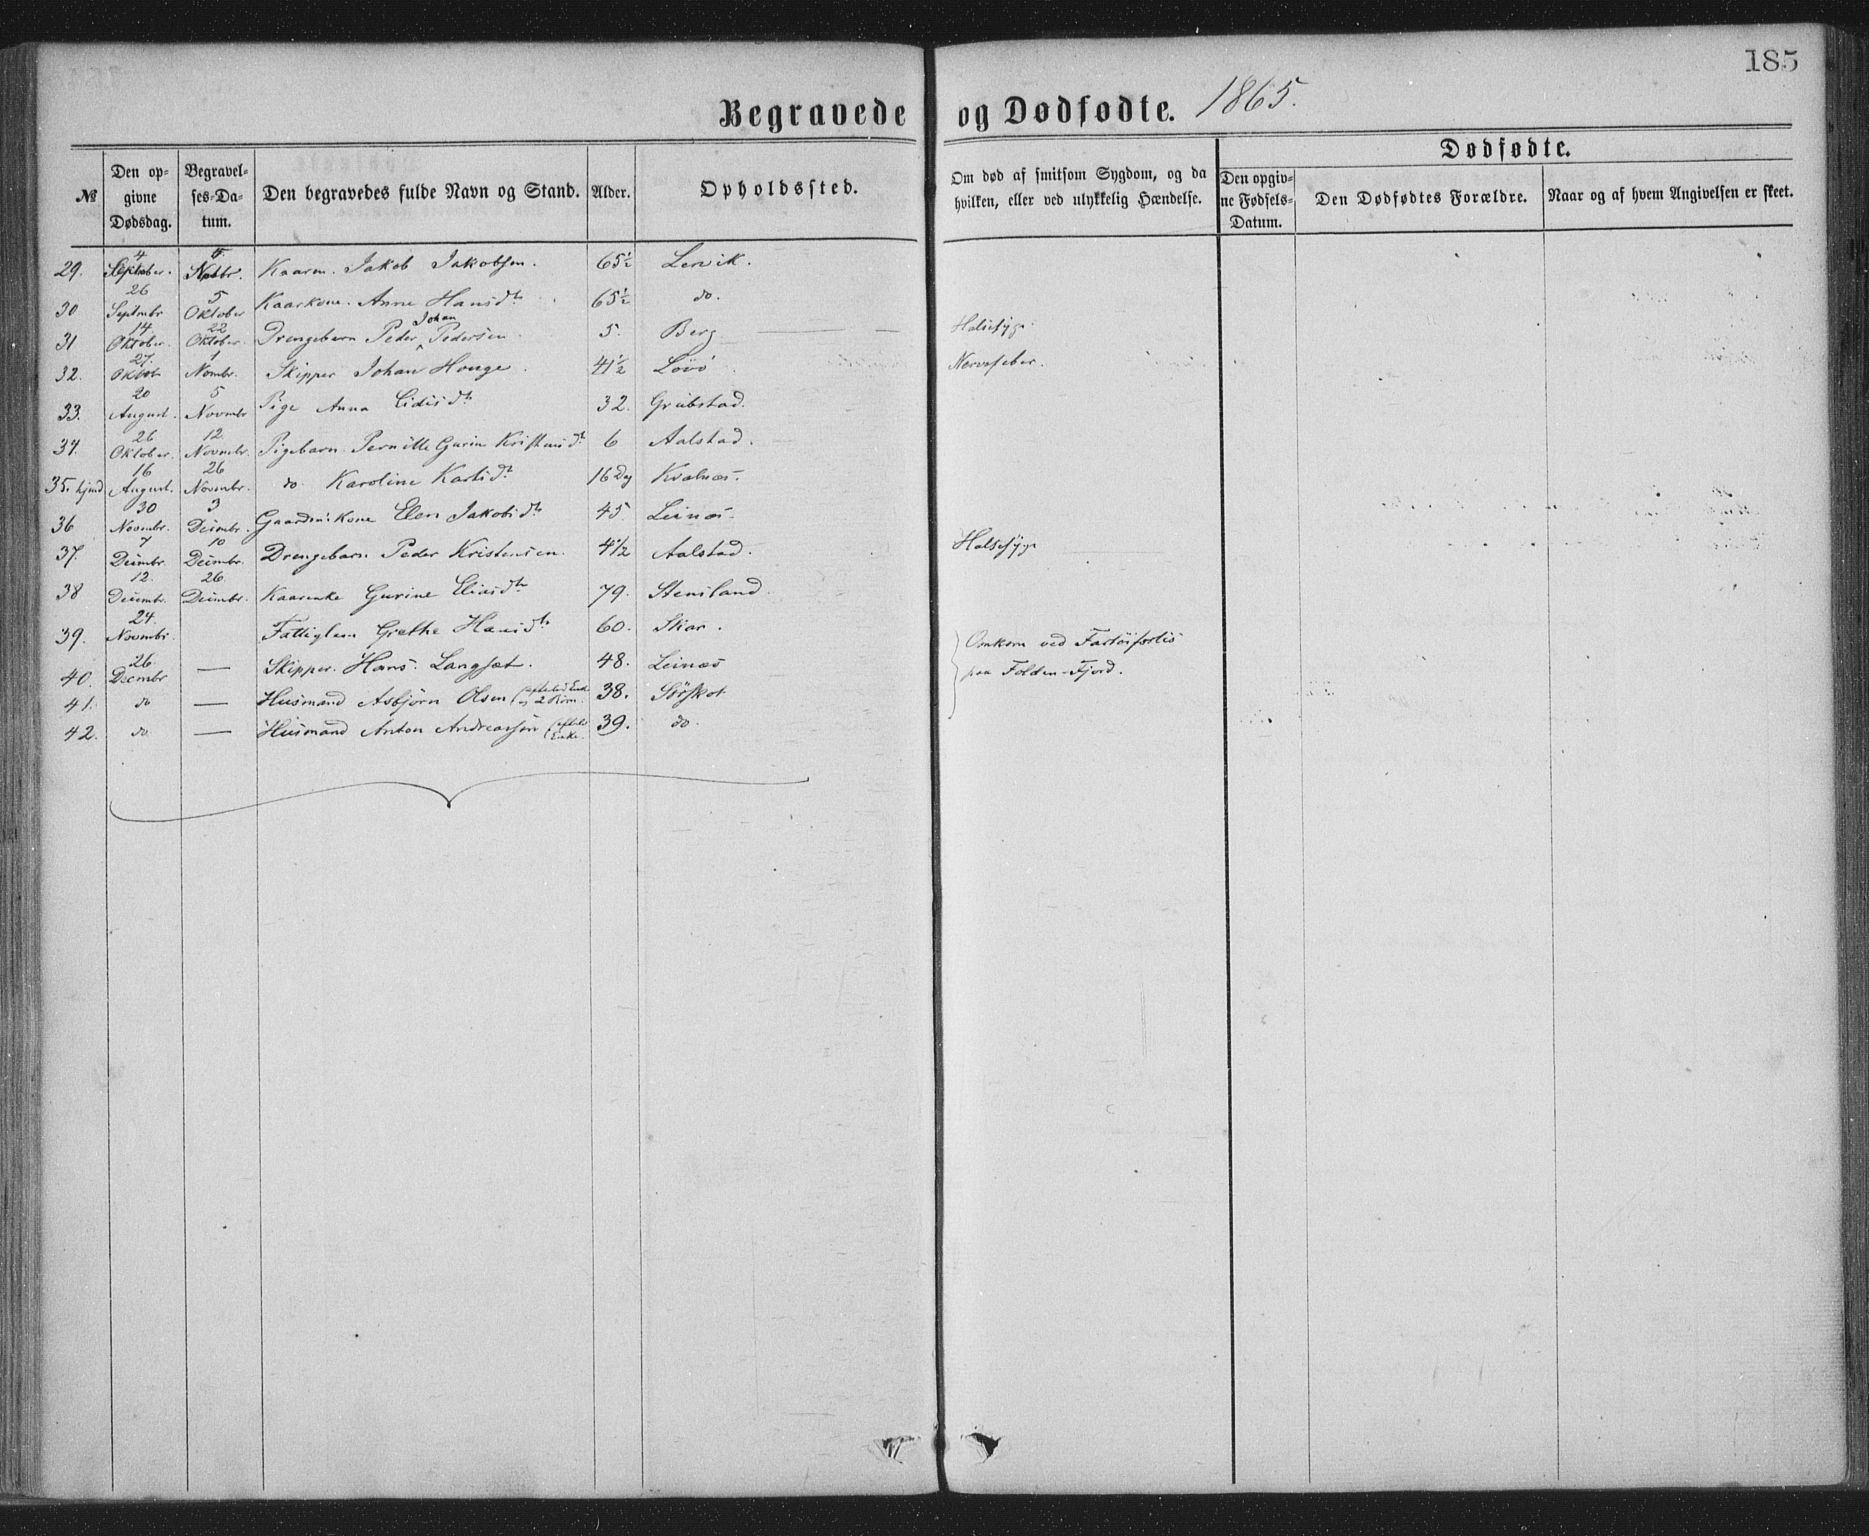 185
Begravede og Dødfødte. 1865.
Dødfødte.
№ Den opgivne Dødsdag. Begravelses-Datum. Den begravedes fulde Navn og Stand. Alder. Opholdssted. Om død af smitsom Sygdom, og da hvilken, eller ved ulykkelig Hændelse. Den opgivne Fødsels-Datum. Den Dødfødtes Forældre. Naar og af hvem Angivelsen er skeet.
29. 4 5 Kaarm. Jakob Jakobsen. 65½ Lervik.
30 26 Septmbr 5 Oktober Kaarkone. Anne Hansdtr 65½ do.
31 14 Oktober. 22 Oktober. Drengebarn Peder Johan Pedersen. 5. Berg Halssyge
32. 27. Oktobr 1 Novmbr. Skipper Johan Houge. 41½ Lövö Nervefeber.
33. 20 August. 5 Novmbr Pige Anna 32. Grübstad.
34. 26 Oktober. 12. Novmbr. Pigebarn. Pernille Gurin 6 Aalstad.
35. hjmd 16 August. 26 Novmbr. do. Karoline 16 Dg Kvalnæs.
36 30 Novmbr. 3 Decmbr. Gaardmkone Elen Jakobsdtr 45 Leinæs
37. 7 Decmbr. 10 Decmbr. Drengebarn Peder Kristensen. 4½ Aalstad. Halssyge
38 12. Decmbr. 26. Decmbr. Kaarenke Gurine Eliasdtr 79. Stensland.
39. 24. Novmbr. Fattiglem Grethe Hansdtr 60. Skar.
40. 26. Decmbr — Skipper. Hans. Langset. 48. Leinæs Omkom ved Fartöiforlis
paa Folden-Fjord.
41. do — Husmand Asbjörn Olsen (efterlod Enke og 2 Börn. 38. Sörskot
42. do. — Husmand Anton Andreassen (efterlod Enke. 39. do.